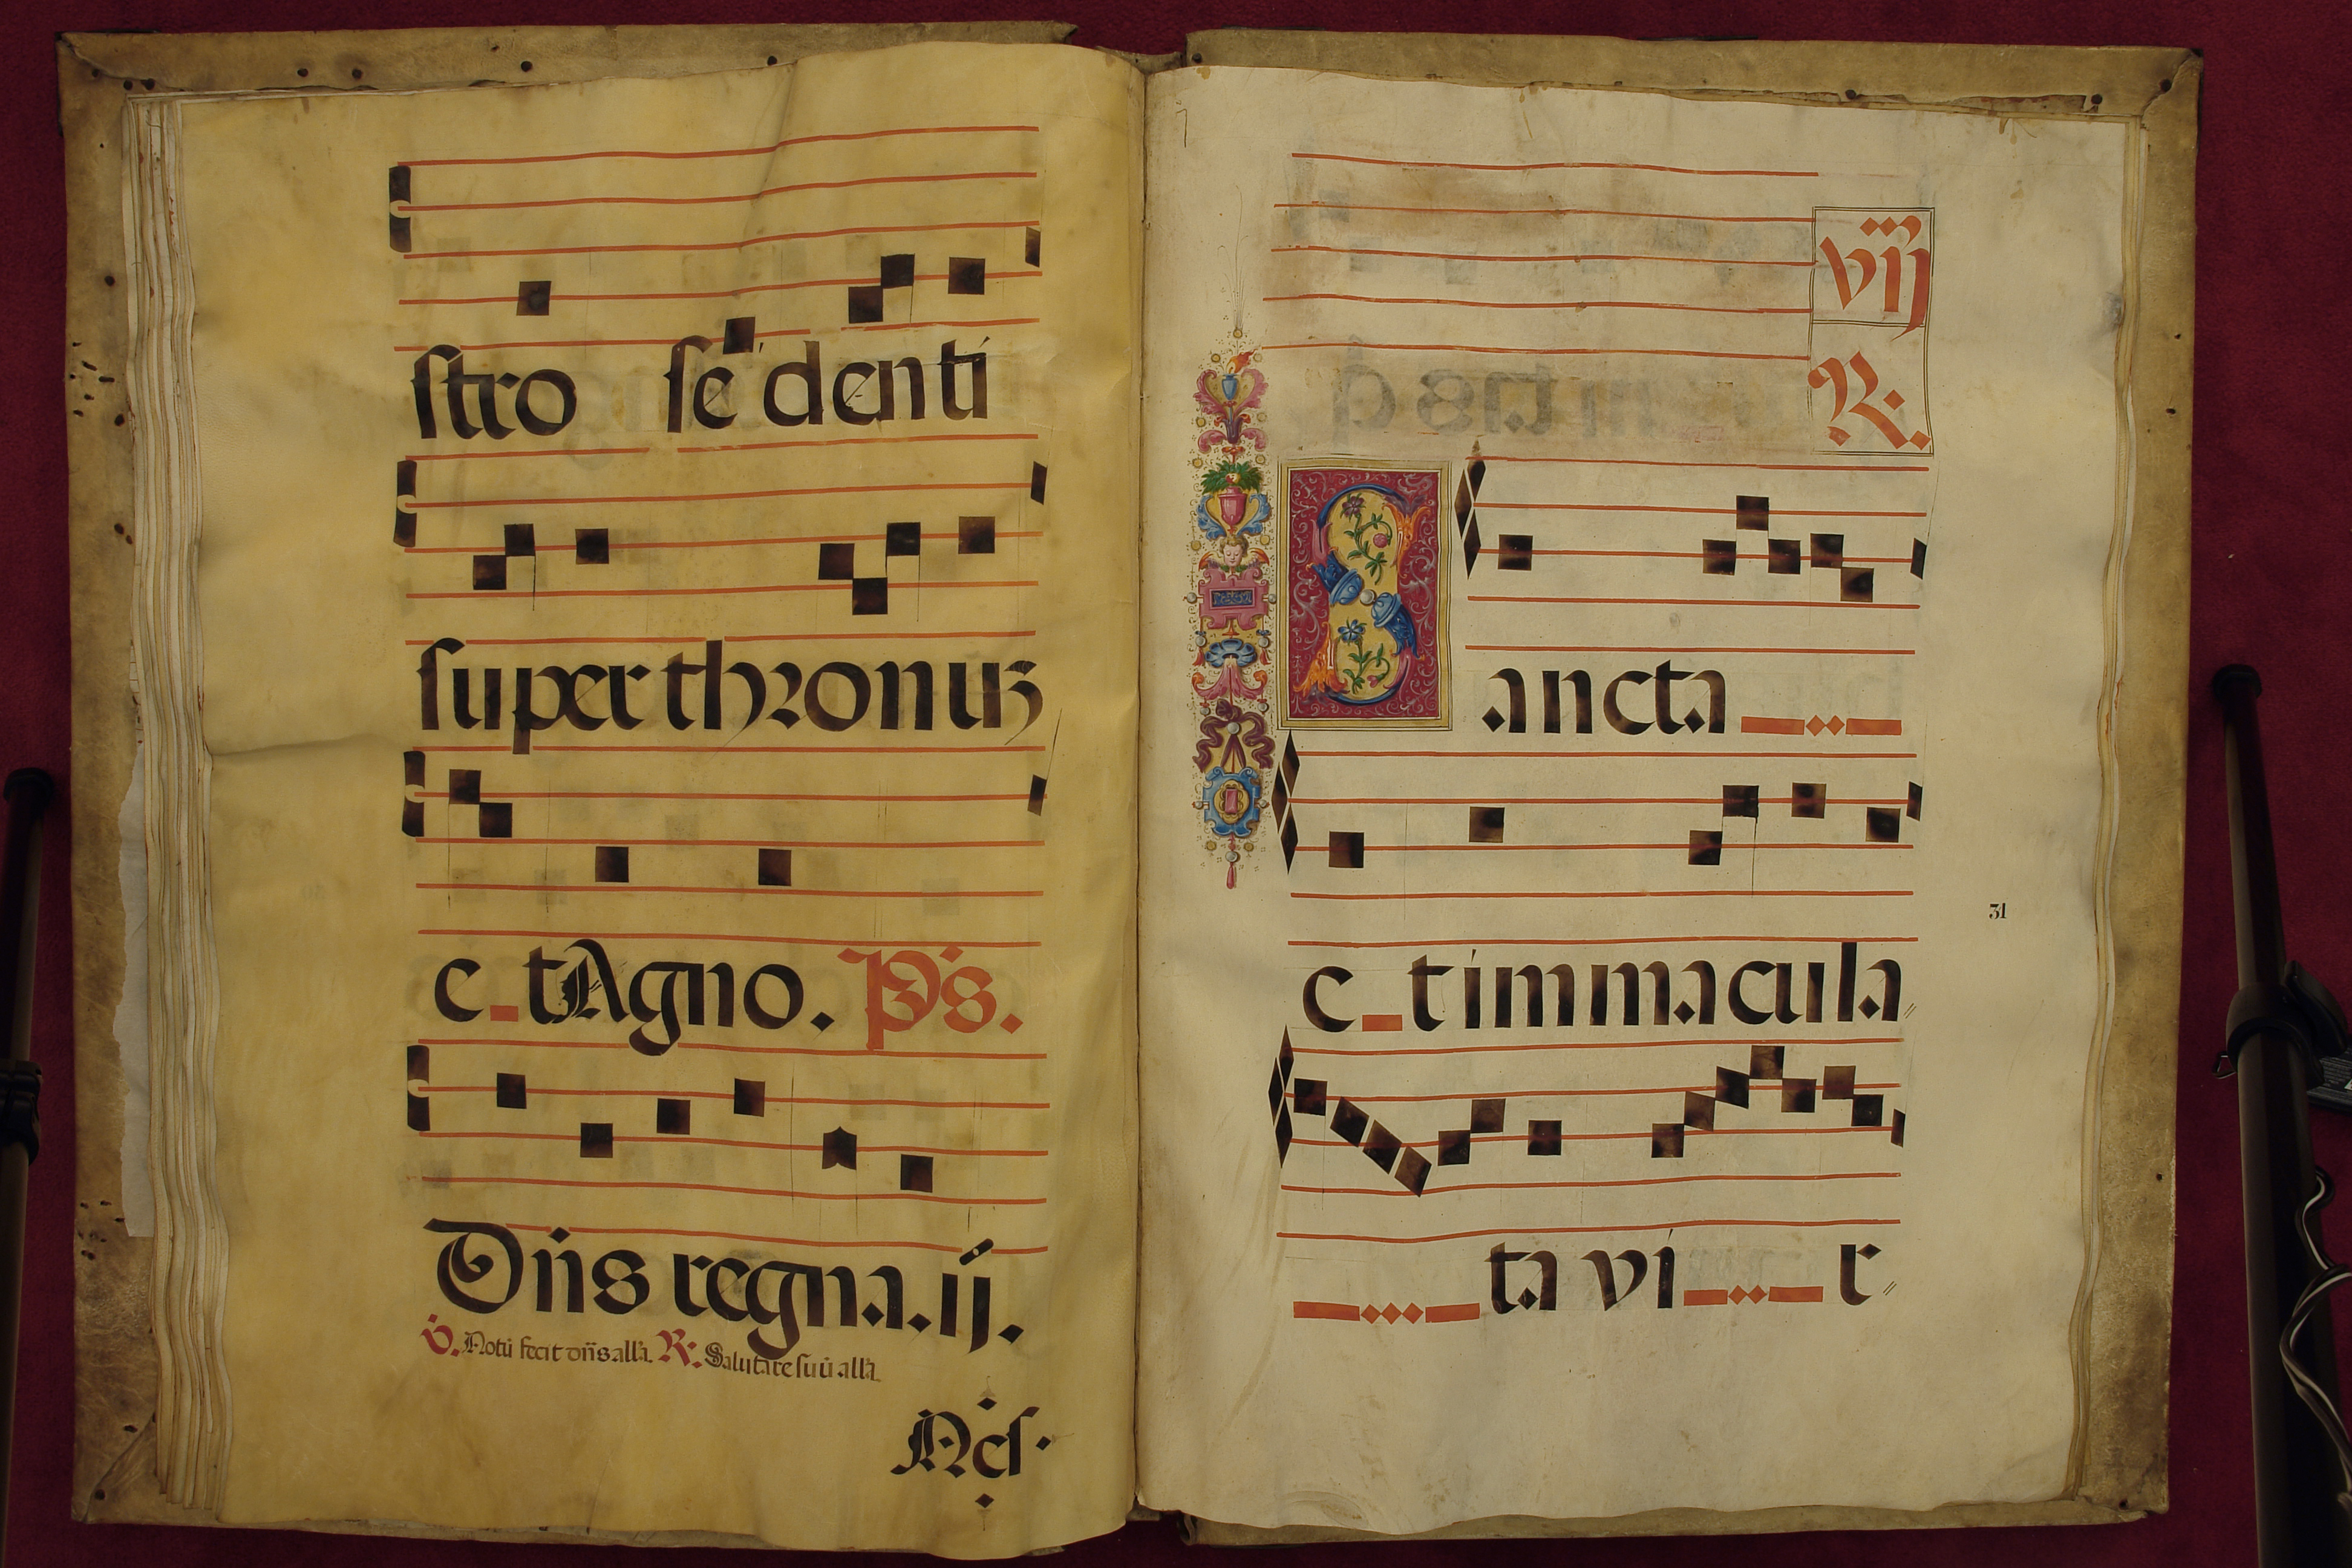 stro se denti
super thronuz
e_t Agno. Ps.
Dns regna. ij.
V. Notu fecit dns alla. R: Salutare suu alla.
vij
R.
Sancta
e_t immacula
ta vi r
31